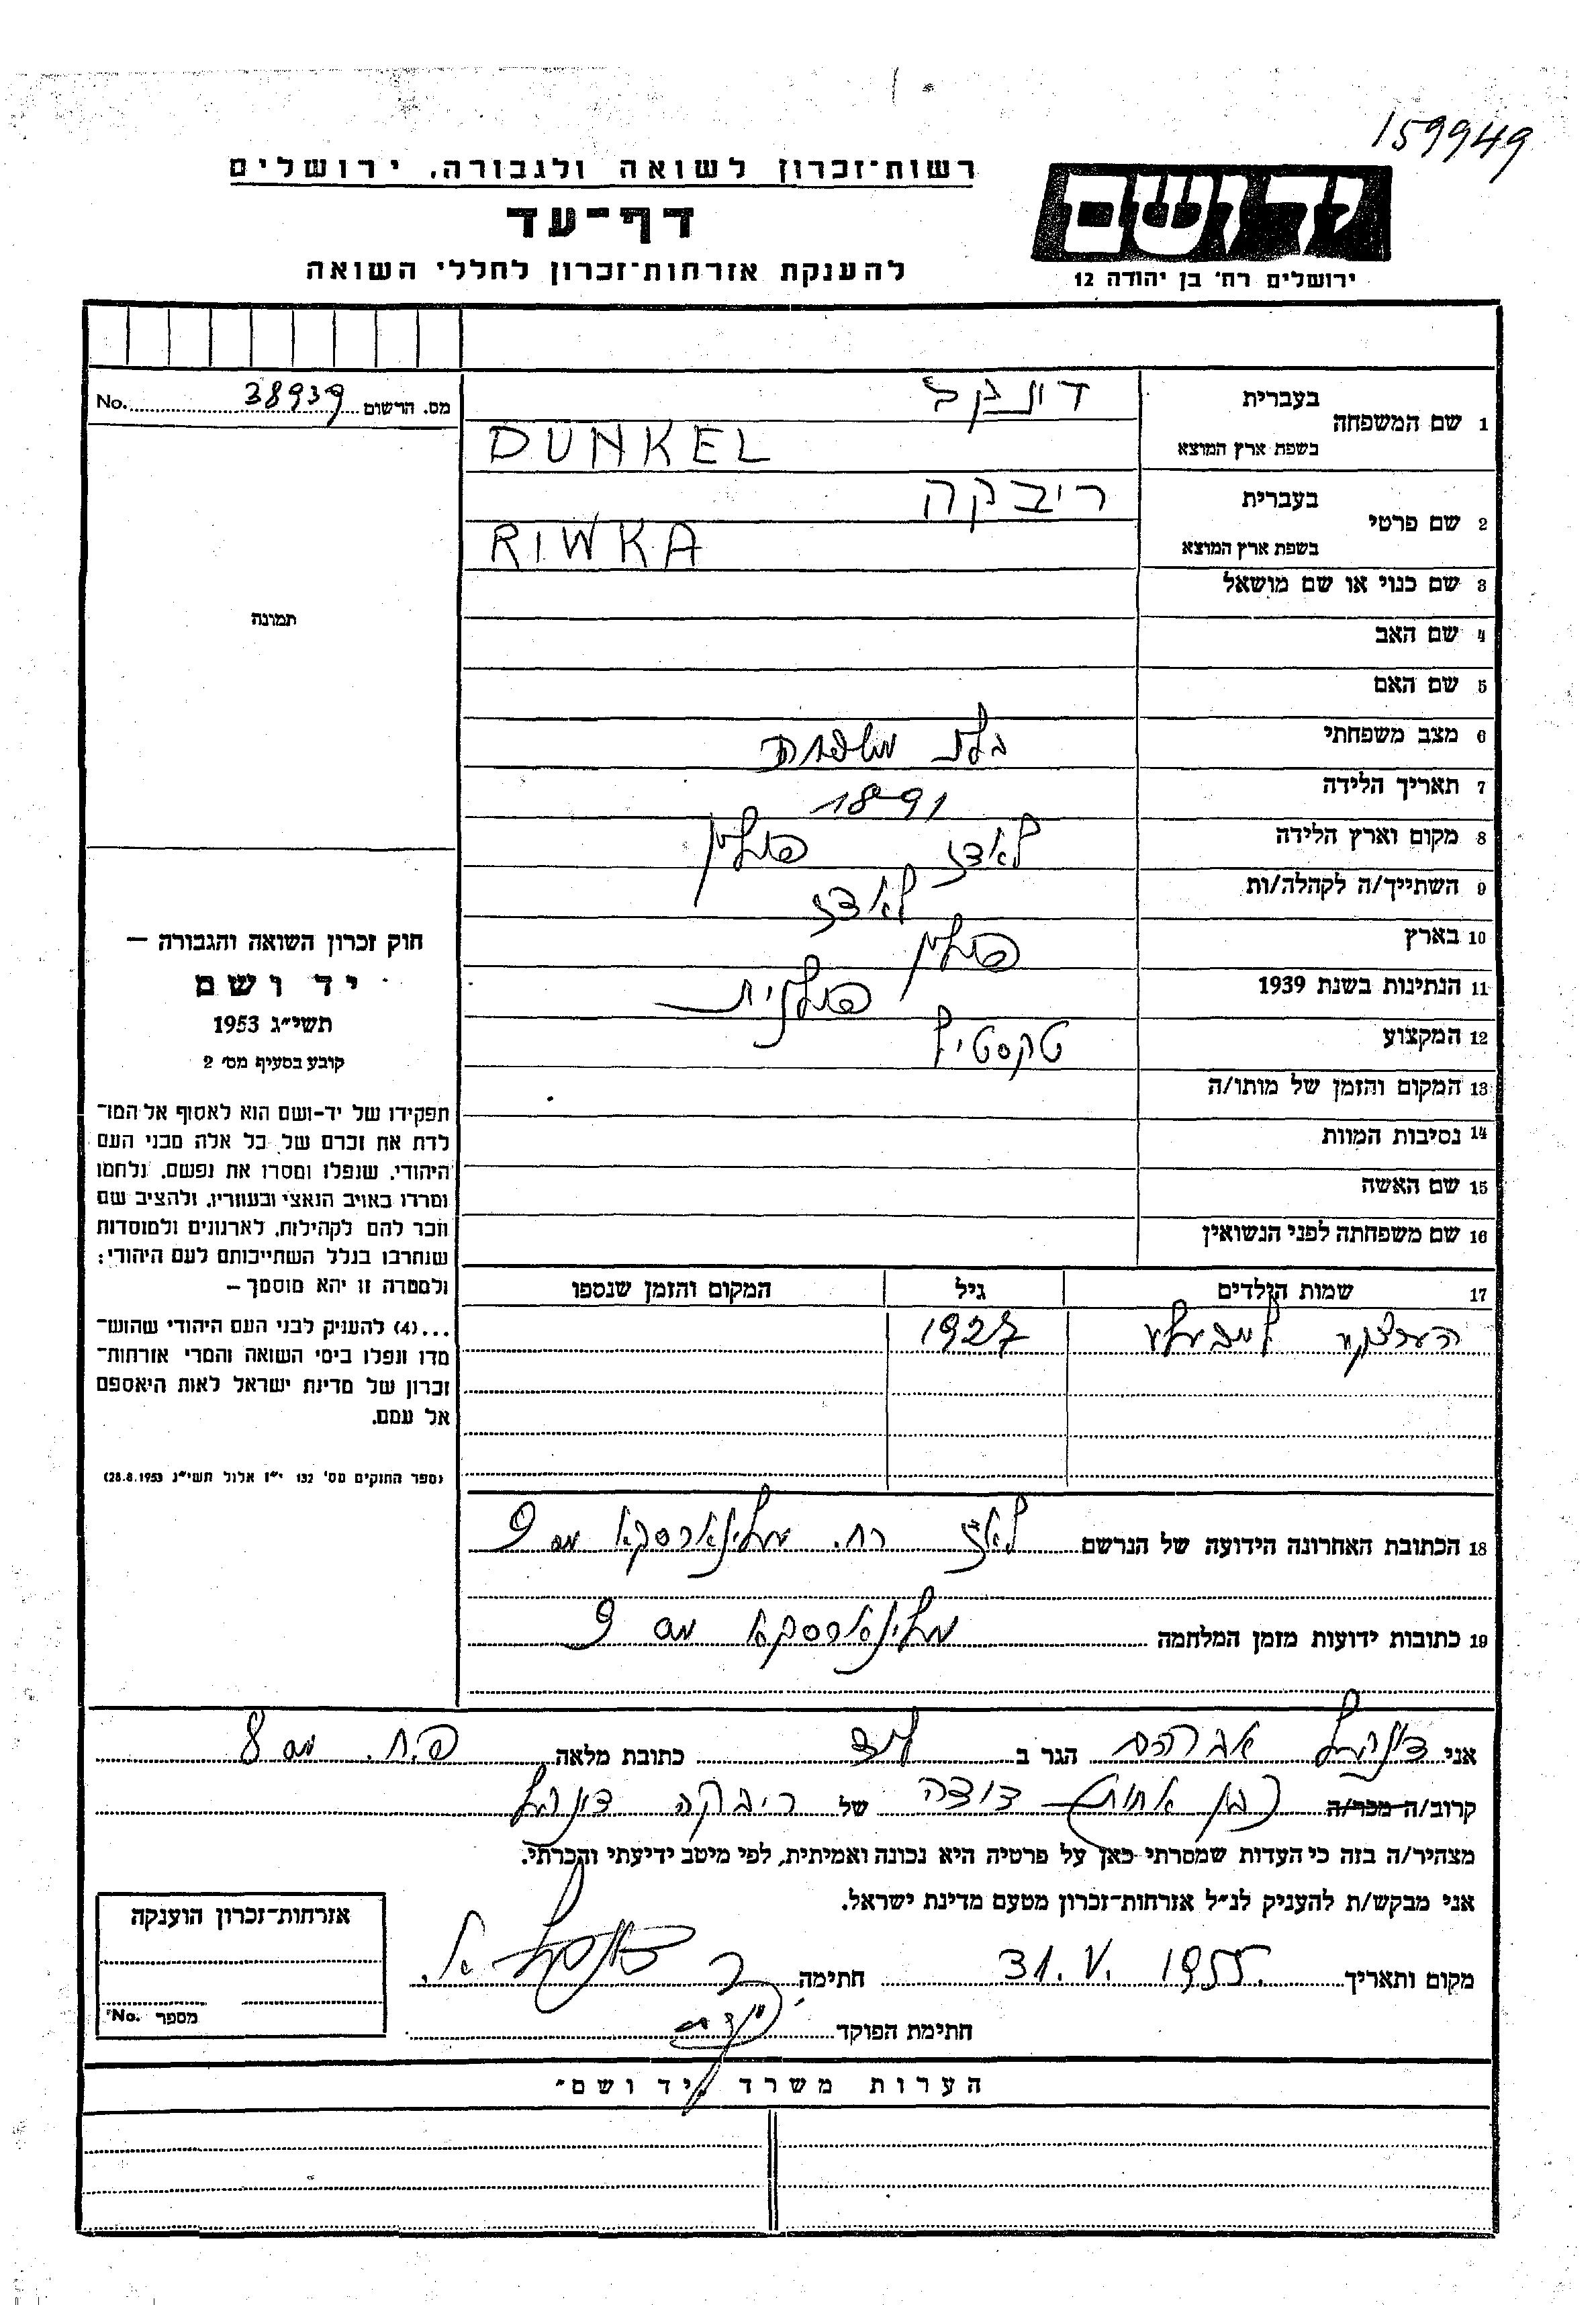 159949
רשות־זכרון לשואה ולגבורה, ירושלים
דף־עד
להענקת אזרחות־זכרון לחללי השואה
יד ושם
ירושלים רח' בן יהודה 12
מס. הרשום 38939 No.
תמונה
חוק זכרון השואה והגבורה –
יד ושם
תשי״ג 1953
קובע בסעיף מס׳ 2
תפקידו של יד-ושם הוא לאסוף אל המו־
לדת את זכרם של כל אלה מבני העם
היהודי, שנפלו ומסרו את נפשם, נלחמו
ומרדו באויב הנאצי ובעוזריו, ולהציב שם
וזכר להם לקהילות, לארגונים ולמוסדות
שנחרבו בגלל השתייכותם לעם היהודי:
ולמטרה זו יהא מוסמך –
...(4) להעניק לבני העם היהודי שהוש־
מדו ונפלו בימי השואה והמרי אזרחות־
זכרון של מדינת ישראל לאות היאספם
אל עמם.
(ספר החוקים מס' 132 י״ז אלול תשי״ג 28.8.1953)
1 שם המשפחה בעברית דונקל
בשפת ארץ המוצא DUNKEL
2 שם פרטי בעברית ריבקה
בשפת ארץ המוצא RIWKA
3 שם כנוי או שם מושאל
4 שם האב
5 שם האם
6 מצב משפחתי בעלת משפחה
7 תאריך הלידה 1891
8 מקום וארץ הלידה לאדז פולין
9 השתייך/ה לקהלה/ות לאדז
10 בארץ פולין
11 הנתינות בשנת 1939 פולנית
12 המקצוע טקסטיל
13 המקום והזמן של מותו/ה
14 נסיבות המוות
15 שם האשה
16 שם משפחתה לפני הנשואין
17 שמות הילדים גיל המקום והזמן שנספו
1927
18 הכתובת האחרונה הידועה של הנרשם לאדז רח. מלינארסקא מס 9
19 כתובות ידועות מזמן המלחמה מלינארסקא מס 9
אני דונקל אברהם הגר ב לוד כתובת מלאה פ.ח. מס 8
קרוב/ה מכר/ה (בן אחות) דודה של ריבקה דונקל
מצהיר/ה בזה כי העדות שמסרתי כאן על פרטיה היא נכונה ואמיתית, לפי מיטב ידיעתי והכרתי.
אני מבקש/ת להעניק לנ״ל אזרחות־זכרון מטעם מדינת ישראל.
מקום ותאריך 31.V. 1955. חתימה דונקל א.
חתימת הפוקד
אזרחות־זכרון הוענקה
מספר No.
הערות משרד „יד ושם״